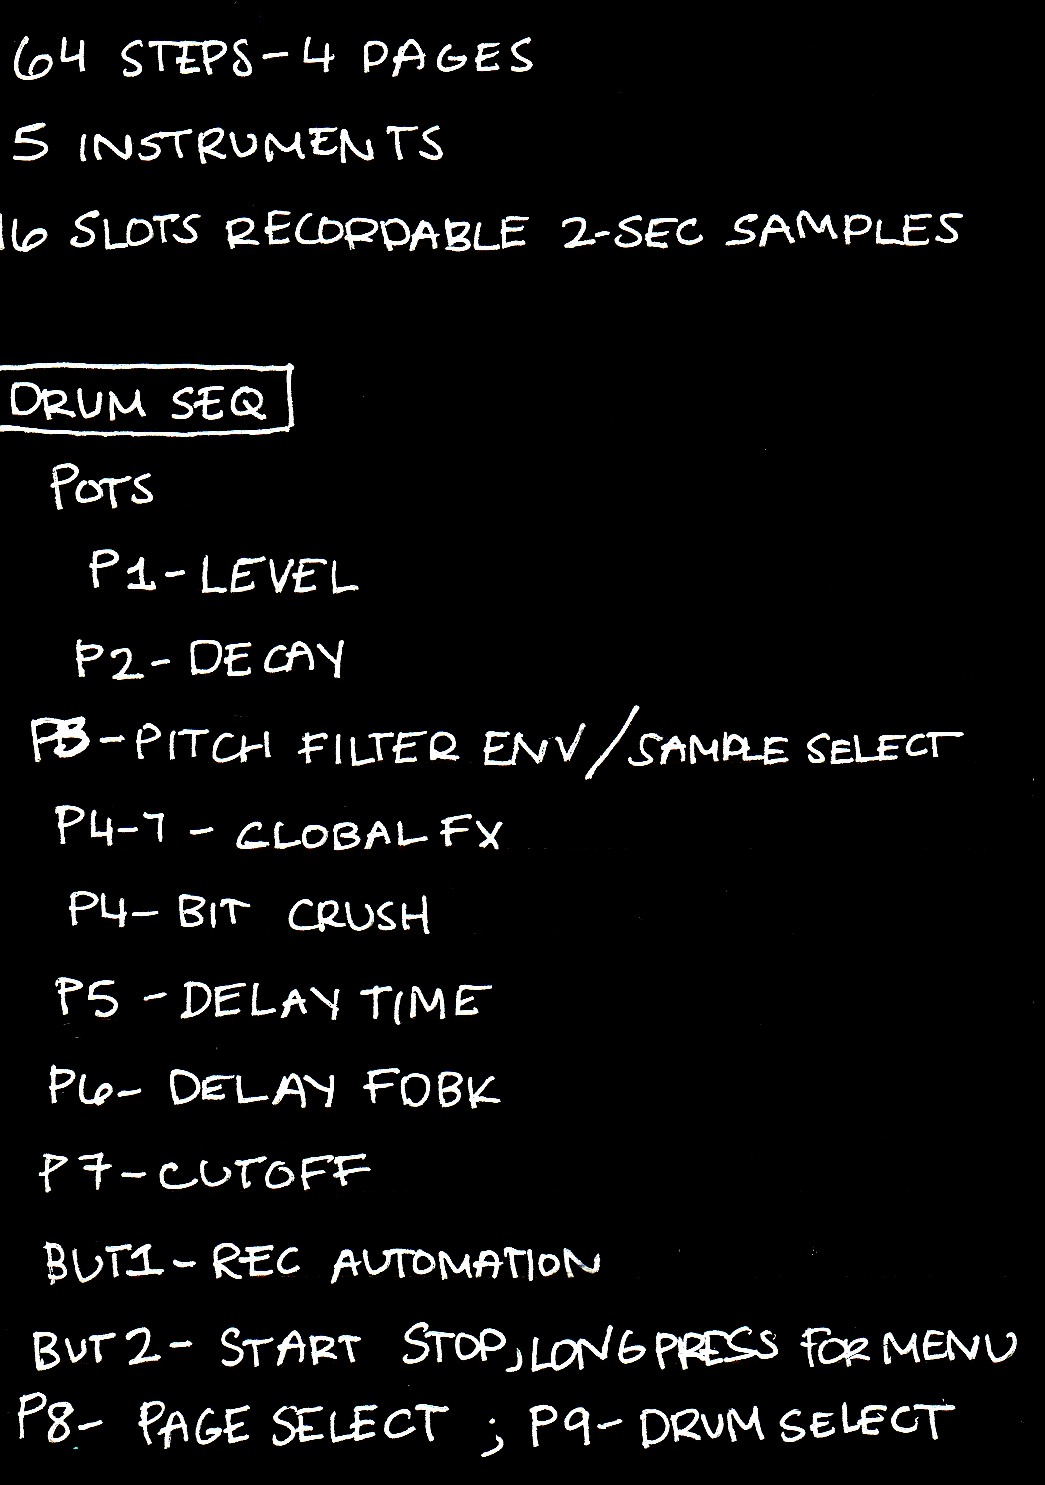 64 STEPS-4 PAGES
5 INSTRUMENTS
16 SLOTS RECORDABLE 2-SEC SAMPLES
DRUM SEQ
POTS
P1-LEVEL
P2-DECAY
P3-PITCH FILTER ENV/SAMPLE SELECT
P4-7 - GLOBAL FX
P4- BIT CRUSH
P5 - DELAY TIME
P6- DELAY FDBK
P7-CUTOFF
BUT1- REC AUTOMATION
BUT2- START STOP, LONG PRESS FOR MENU
P8- PAGE SELECT ; P9- DRUM SELECT